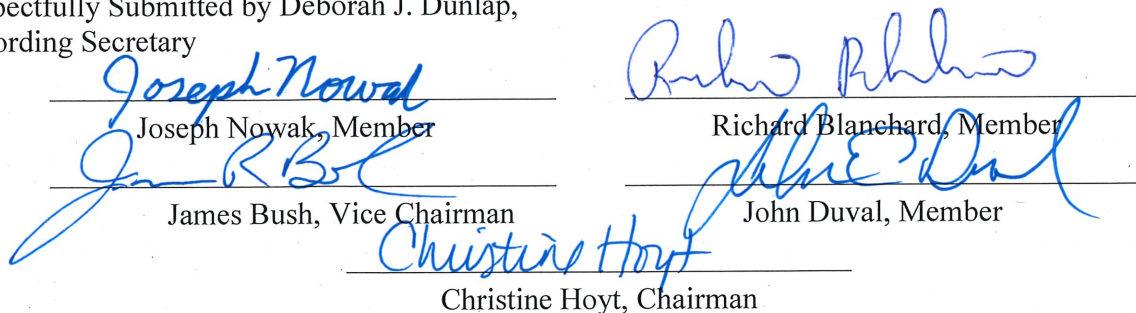 pectfully Submitted by Deborah J. Dunlap,
ording Secretary
Joseph Nowak
Joseph Nowak, Member
Richard Blanchard, Member
James Bush, Vice Chairman
John E Duval
John Duval, Member
Christine Hoyt
Christine Hoyt, Chairman